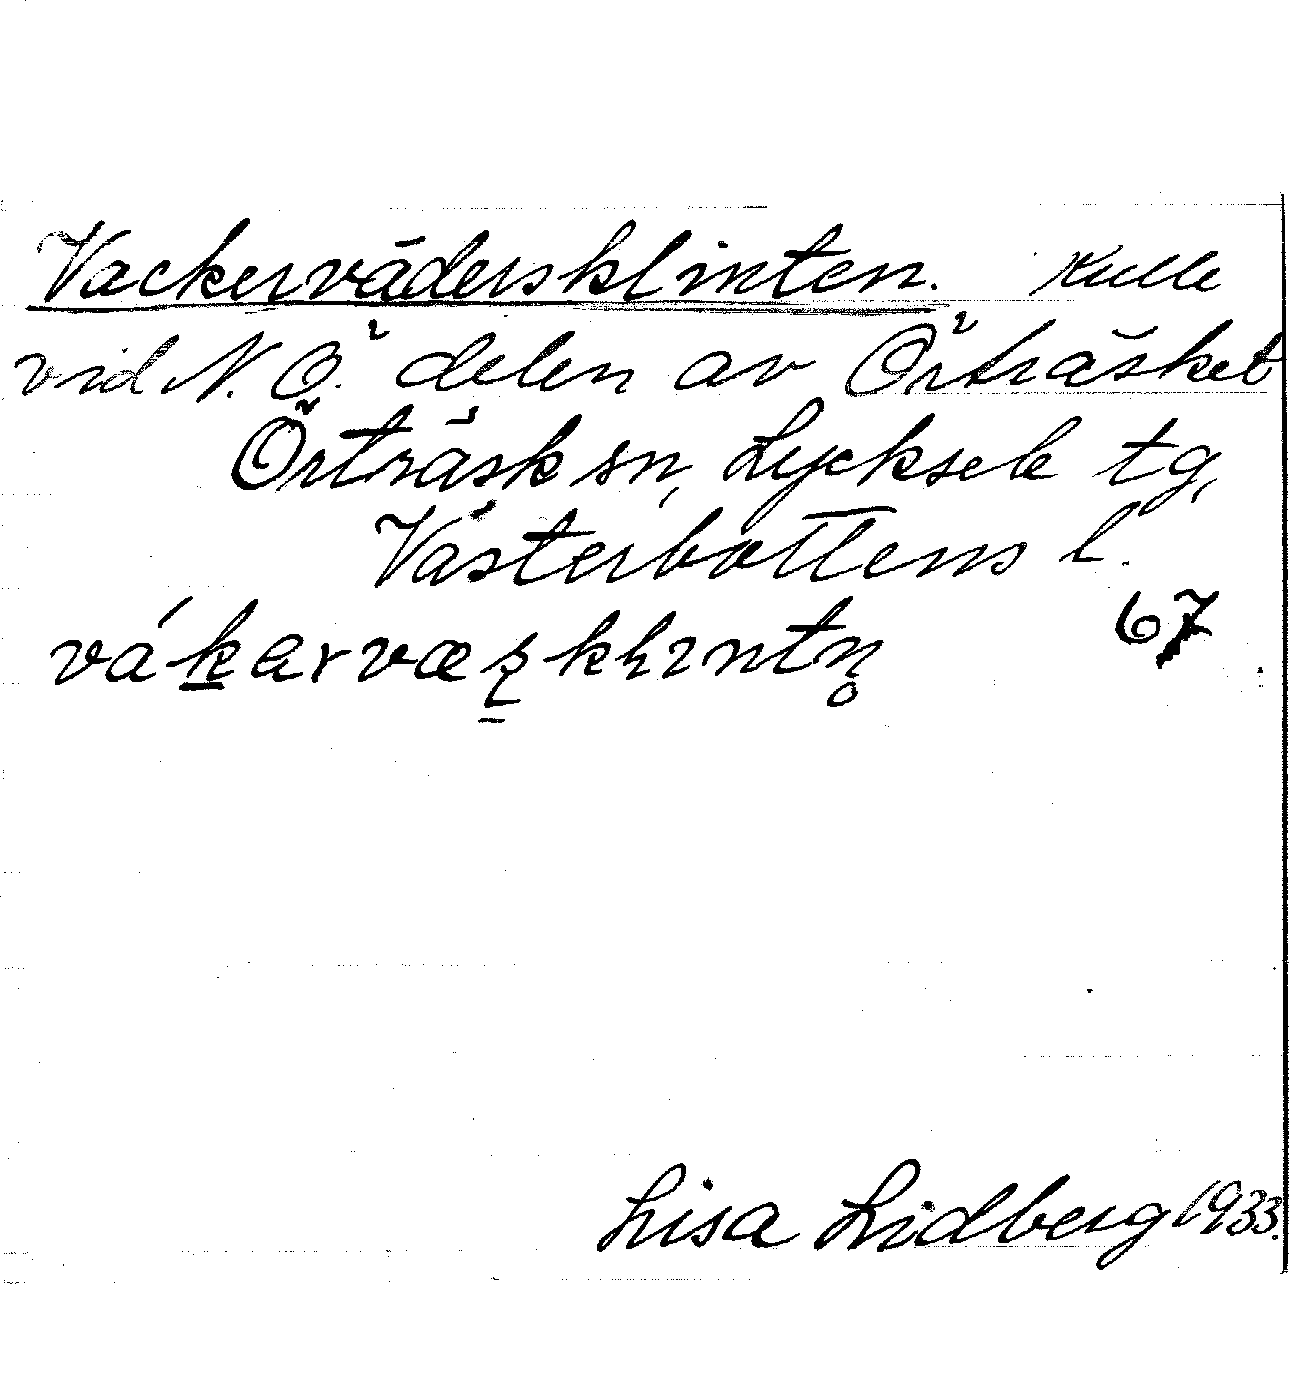 Vackervädersklinten. Kulle
vid N.Ö. delen av Örträsket
Örträsk sn, Lycksele tg,
Västerbottens l.
67
Lisa Lidberg 1933.